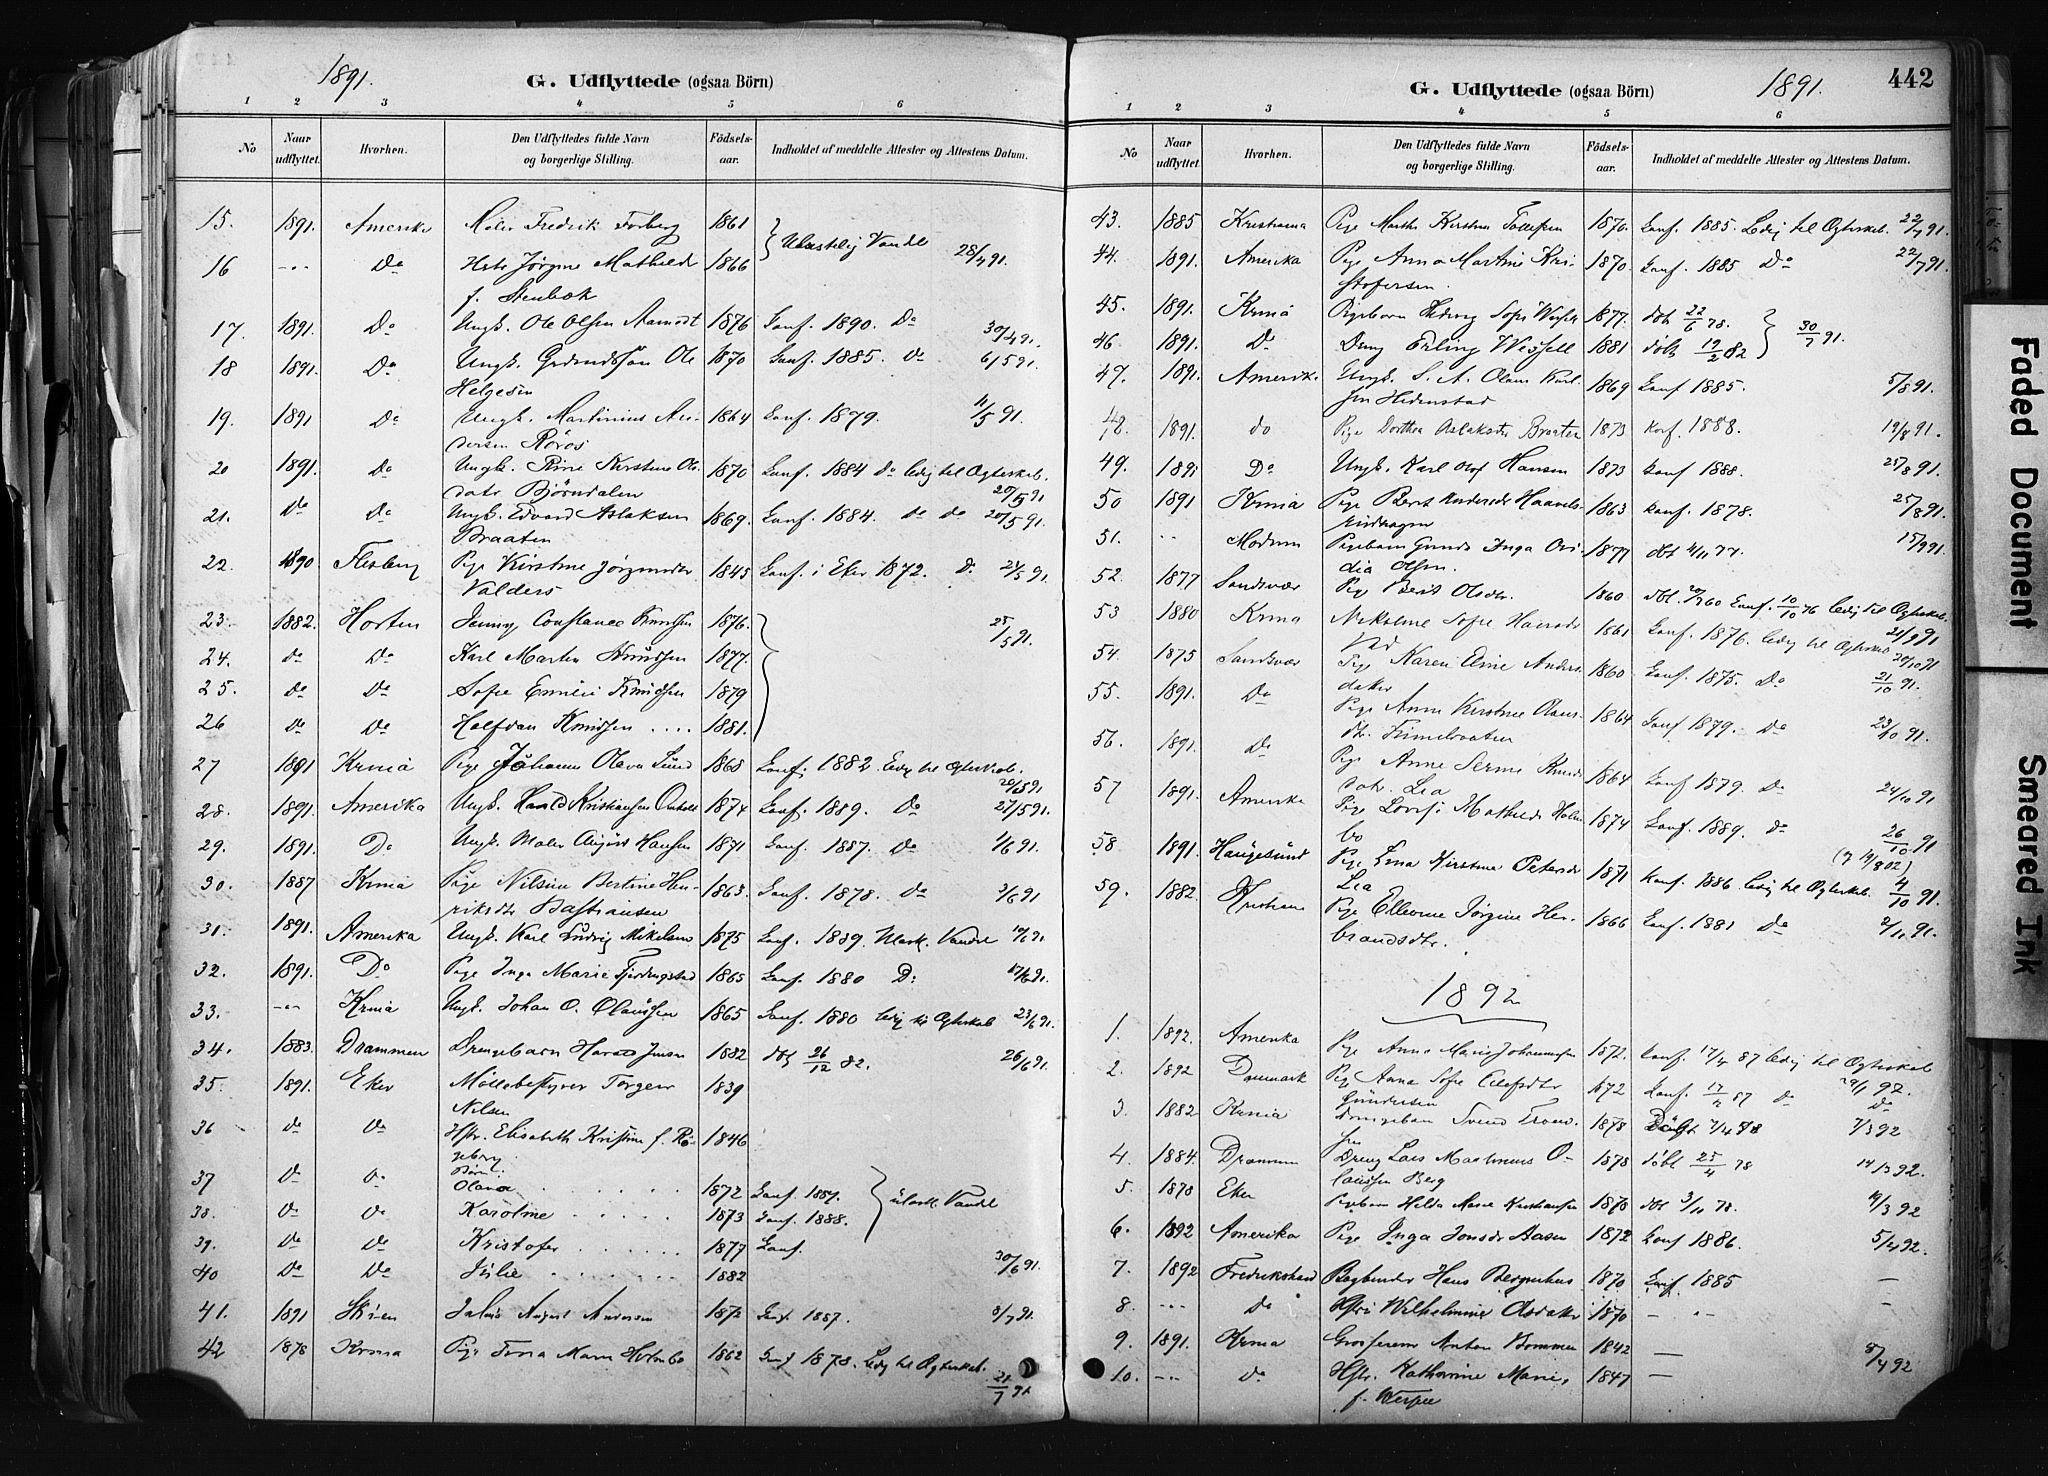 1891.
G. Udflyttede (ogsaa Börn)
1 2 3 4 5 6
No
Naar udflyttet.
Hvorhen.
Den Udflyttedes fulde Navn og borgerlige Stilling.
Födsels-aar.
Indholdet af meddelte Attester og Attestens Datum.
15. 1891. Amerika Maler Fredrik Forberg 1861
16 Do Jörgine Mathilde 1866 Vandel 28/4 91.
f. Stenbæk
17. 1891. Do Ungk. Ole Olsen Aamodt 1876 Conf. 1890. Do 30/4 91.
18 1891. Do Ungk. Gudmundsen Ole 1870 Conf. 1885. Do 6/5 91.
Helgesen
19. 1891 Do Ungk. Martinius An- 1864 Conf. 1879. 11/5 91.
dersen Röros
20 1891. Do Kirstine Ols- 1870 Conf. 1884 Do ledig til Ægteskab.
datr Björndalen 20/5 91
21. Do Do Ungk. Edvard Aslaksen 1869. Conf. 1884. do do 20/5 91.
Braaten
22. 1890 Flesberg Pige Kirstine Jörgensdtr 1845 Conf. i Eker 1872. Do 21/5 91.
Valders
23. 1882. Horten Jenny Constance Knudsen 1876. 25/5 91.
24. do Do Karl Martin Knudsen 1877.
25. do Do Sofie Emilie Knudsen 1879
26 do Do Halfdan Knudsen .... 1881.
27 1881 Krnia Pige Johanne Olava Lund 1868 Conf. 1882. Ledig til Ægteskab.
28. 1891. Amerika Ungk. Harald Kristiansen 1874 Conf. 1889. Do 27/5 91.
29. 1891. Do Ungk. Maler August Hansen 1871 Conf. 1887. Do 1/6 91.
30. 1887 Krnia Pige Nilsine Bertine Hen- 1863. Conf. 1878. Do 3/6 91
riksdtr Bastiansen
31. 1891. Amerika Ungk. Karl Ludvig Mikelsen 1875 Conf. 1889. Vandel 91.
32. 1891. Do Pige Inga Marie Fjerdingstad 1865 Conf. 1880 Do 17/6 91.
33. Krnia Ungk. Johan O. Olaussen 1865 Conf. 1880 ledig til Ægteskab 23/6 91.
34. 1883. Drammen Drengebarn Harald Jensen 1882 döbt 26/12 82. 26/6 91.
35. 1891. Eker Möllebestyrer Torgeir 1839
Nilsen
36 do Do Hstr. Elisabeth Kristine f. Rö- 1846
geberg
Börn:
37 do Do Olava 1872 Conf. 1887.
38. do Do Karoline 1873 Conf. 1888. Vandel
39. do Do Kristofer 1877 Conf.
40 do Do Julie 1882 30/6 91.
41. 1891 Skien August Andersen 1872 Conf. 1887. 8/7 91.
42 1878 Krnia Pige Marie Holmbo 1862 Conf 1878. Ledig til Ægteskab. 21/7 91
G. Udflyttede (ogsaa Börn)
1891.
442
1. 2 3 4 5 6
No
Naar udflyttet.
Hvorhen.
Den Udflyttedes fulde Navn og borgerlige Stilling.
Födsels-aar.
Indholdet af meddelte Attester og Attestens Datum.
43. 1885 Kristiania Pige Marthe Kirstine Tollefsen 1870. Conf. 1885. Ledig til Ægteskab. 22/7 91.
44. 1891. Amerika Pige Anna Martine Kri- 1870. Conf. 1885 Do 22/7 91.
stofersen.
45. 1891. Krnia Pigebarn Hedvig Sofie Wessell 1877. döbt 22/6 78.
46 1891. Do Dreng Erling Wessell 1881 döbt 19/2 82 30/7 91.
47. 1891. Amerika Ungk. S. A. Olaus Karl- 1869 Conf 1885. 5/8 91.
sen Hedenstad
48. 1891. do Pige Dorthea Aslaksdtr Braaten 1873 Konf. 1888. 19/8 91.
49. 1891 Do Ungk. Karl Olof Hansen 1873 Conf 1888. 25/8 91.
50 1891 Krnia Pige Berit 1863 Konf. 1878. 25/8 91.
51. Modum Pigebarn Gunda Inga Ovi- 1877 döbt 4/11 77. 15/9 91.
dia Olsen.
52. 1877 Sandsvær Pige Berit Olsdtr. 1860 döbt. Conf. 10/10 76 ledig til Ægteskab.
53 1880 Krnia Nikoline Sofie Hansdtr 1861 Conf. 1876. ledig til Ægteskab 21/9 91
54. 1875 Sandsvær Pige Karen Eline Anders- 1860 Conf. 1875. Do 21/10 91.
55. 1891. Do Pige Anne Kirstine Olaus- 1864 Conf 1879. Do 23/10 91.
56. 1891. Do Pige Anne Serine Knuds- 1864 Conf 1879. Do 24/10 91
datr. Lia
57 1891. Amerika Pige Lovise Mathilde Holm- 1874 Conf. 1889. do 26/10 91
bo
58 1891. Haugesund Pige Lina Kirstine Petersdtr 1871 Konf. 1886. ledig til Ægteskab. 4/10 91.
Lia
59. 1882. Kristiania Pige Elleonne Jörgine Her- 1866 Conf. 1881 Do 2/11 91.
brandsdtr.
1892
1. 1892. Amerika Pige Anna Marie Johannessen 1872. Conf. 87 ledig til Ægteskab
2. 1892 Danmark Pige Anna Sofie Eilefsdtr 1872 Conf. 87 do do
Gundersen
3. 1882 Krnia Drengebarn Svend 1878 Döbt 7/4 78 7/3 92
4. 1884. Drammen Dreng Lars Martinius O- 1878 döbt 25/4 78 14/3 92.
laussen Berg
5. 1878 Eker Pigebarn Hilda Marie Kristiansen 1878 döbt 3/11 78. 19/3 92
6. 1892 Amerika Pige Inga Jonsdr Aasen 1872 Conf 1886. 5/4 92.
7. 1892 Fredrikshald Bogbinder Hans Bergerhus 1870. Conf. 1885 —
8. Do Hstr. Wilhelmine 1870 — —
9. 1891. Krnia Grosserer Anton Bommen 1842 — 8/4 92
10. Do Hstr. Katharine Marie, 1847 —
Faded Document
Smeared Ink